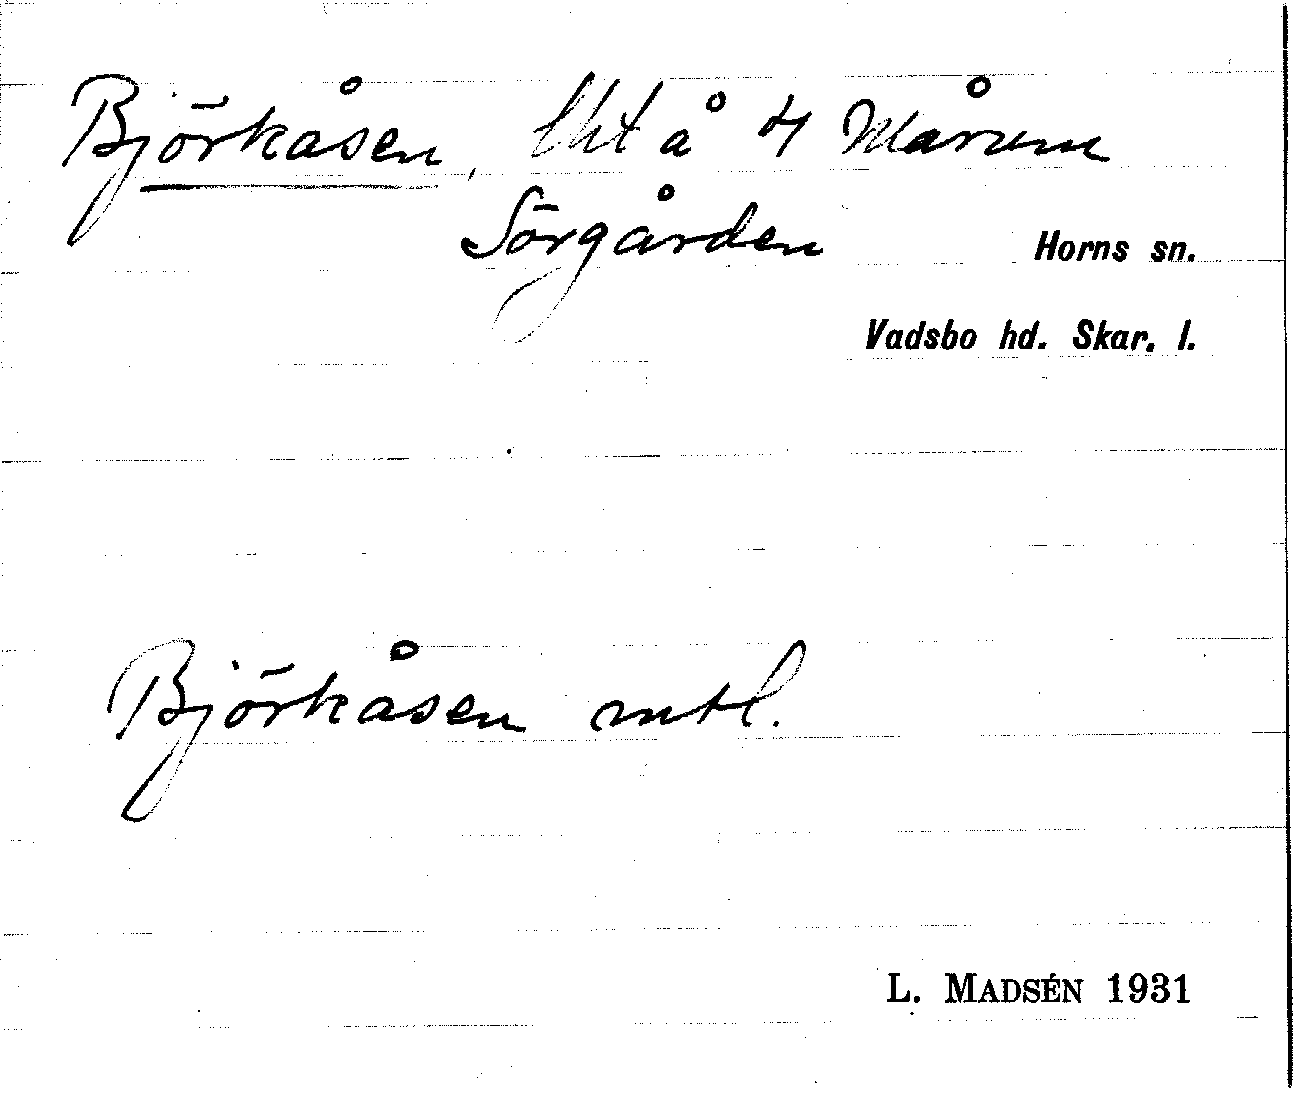 Björkåsen, lht å 4 Mårum
Sörgården
Horns sn.
Vadsbo hd. Skar. l.
Björkåsen mtl.
L. MADSÉN 1931